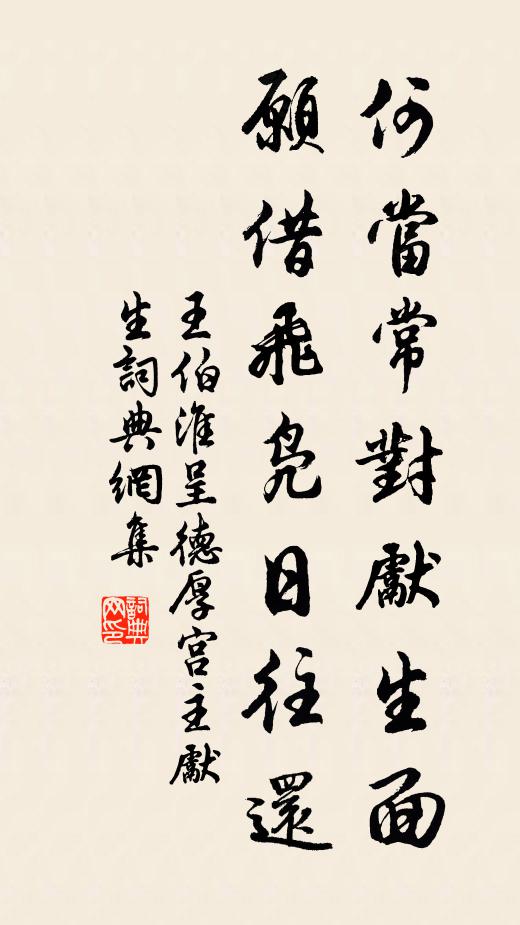 何當常對獻生面
願借飛鳧日往還
王伯淮呈德厚宮主獻
生詞典網集
詞典
网印